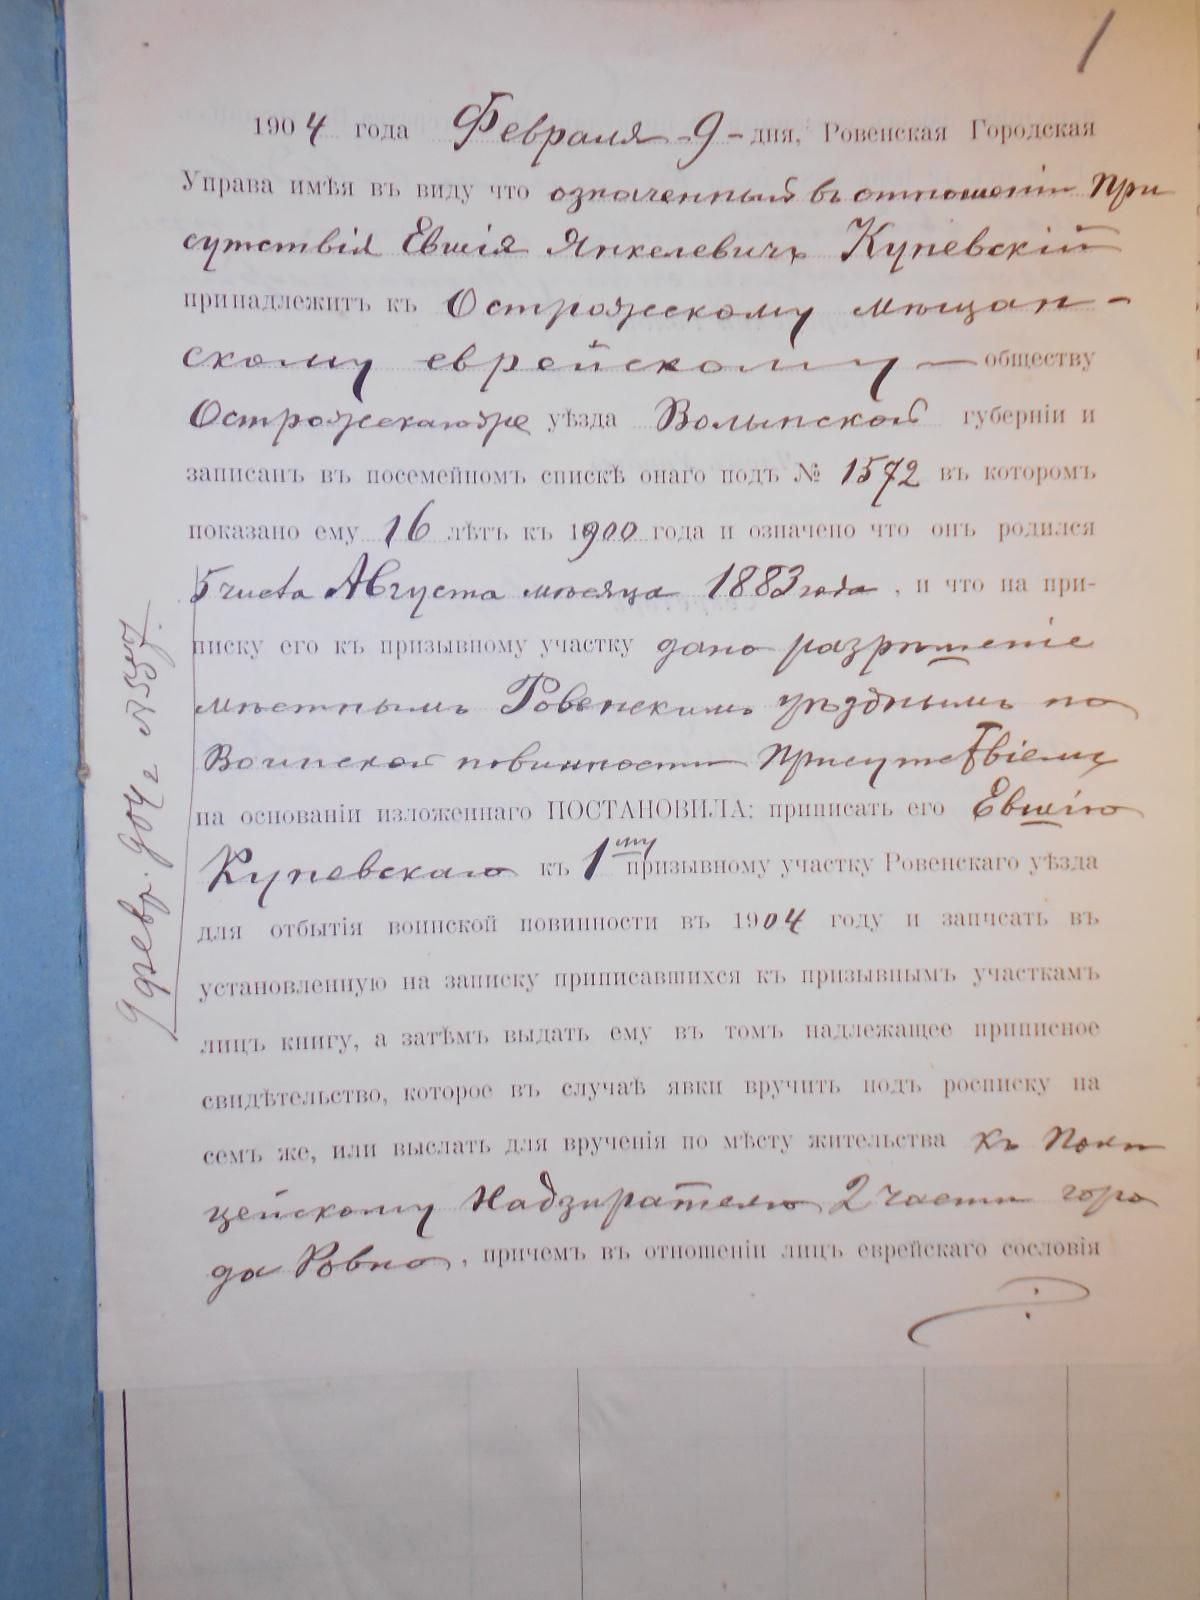 1
1904 года Февраля -9- дня, Ровенская Городская
Управа имѣя въ виду что означенный въ отношеніи При
сутствія Евшія Янкелевичъ Купевскій
принадлежитъ къ Острожскому мѣщан-
скому еврейскому — обществу
Острожскаго уѣзда Волынской губерніи и
записанъ въ посемейномъ спискѣ онаго подъ № 1572 въ которомъ
показано ему 16 лѣтъ къ 1900 года и означено что онъ родился
5 числа Августа мѣсяца 1883 года, и что на при-
писку его къ призывному участку дано разрѣшеніе
мѣстнымъ Ровенскимъ уѣзднымъ по
Воинской повинности Присутствіемъ
на основаніи изложеннаго ПОСТАНОВИЛА: приписать его Евшію
Купевскаго къ 1му призывному участку Ровенскаго уѣзда
для отбытія воинской повинности въ 1904 году и записать въ
установленную на записку приписавшихся къ призывнымъ участкамъ
лицъ книгу, а затѣмъ выдать ему въ томъ надлежащее приписное
свидѣтельство, которое въ случаѣ явки вручить подъ росписку на
семъ же, или выслать для врученія по мѣсту жительства къ Поли
цейскому Надзирателю 2 части горо
да Ровно, причемъ въ отношеніи лицъ еврейскаго сословія
9 февр. 904 г